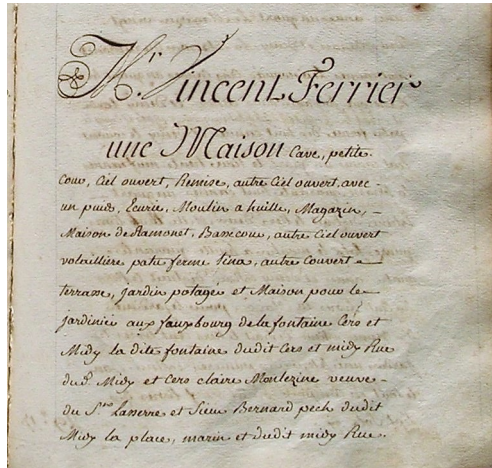 Mr. Vincent Ferrier
une Maison Cave, petite
cour, Ciel ouvert, Remise, autre Ciel ouvert avec
un puid, Ecurie, Moulin a huille, Magazin,
Maison de Ramonet, Bassecour, autre Ciel ouvert
volaillière patu ferme tina, autre Couvert
terrasse, jardin potagé et Maison pour le
jardinié aux fauxbourg de la fontaine Cers et
Midy la dite fontaine dudit Cers et midy Rue
dud. Midy et Cers claire Montezine veuve
du Sr. Lasserre et Sieur Bernard pech dudit
Midy la place, marin et dudit midy Rue.